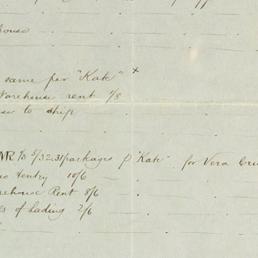 house
same per "Kate" x
Warehouse rent 7/8
to ship
packages p "Kate" for Vera Cru
entry 10/6
rehouse Rent 8/6
of Lading 2/6